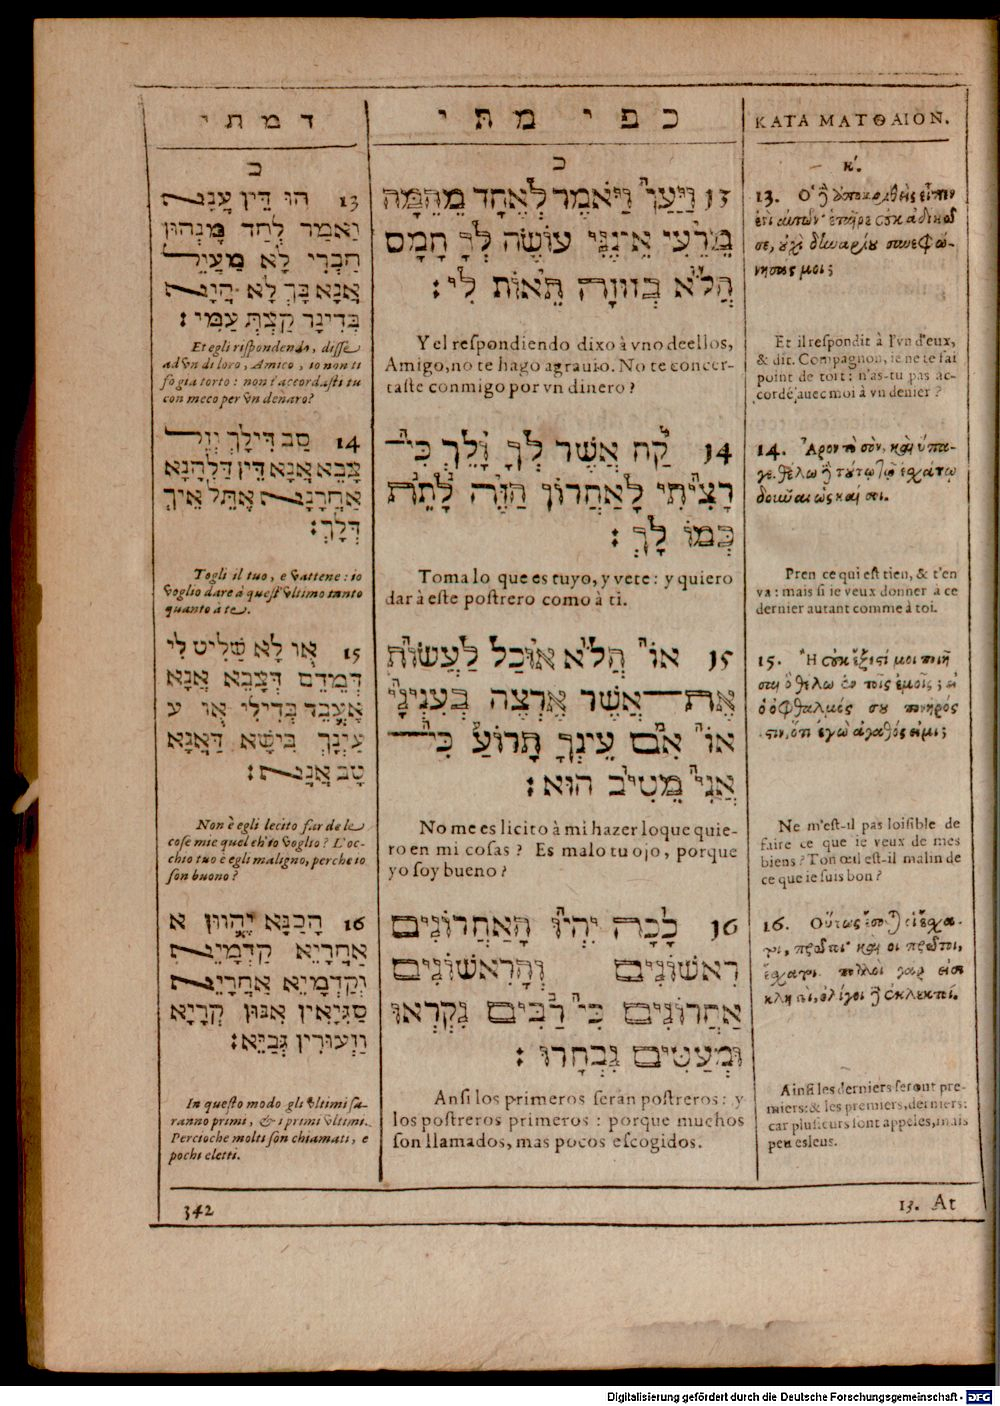 ד מ ת י
כ
13 הו דֵין עֲנָא
וַאמַר לְחַד מִנְהוּן
חַבְרִי לָא מַעְוֵל
אֲנָא בָּךְ לָא הֲוָא
בְּדִינָר קַצְתְּ עַמִּי:
Et egli rispondendo, disse
ad vn di loro, Amico, io non ti
fo gia torto: non t'accordasti tu
con meco per vn denaro?
14 סַב דִּילָךְ וְזֶל
צָבֵא אֲנָא דֵין דַּלְהָנָא
אַחֲרָנָא אֶתֵּל אֵיךְ
דְּלָךְ:
Togli il tuo, e vattene: io
voglio dare a quest'vltimo tanto
quanto à te.
15 אַו לָא שַׁלִּיט לִי
דְּמֵדֵּם דְּצָבֵא אֲנָא
אֶעֱבֵד בְּדִילִי אַו ע
עַיְנָךְ בִּישָׁא דַּאֲנָא
טָב אֲנָא:
Non è egli lecito far de le
cose mie quel ch'io voglio? L'oc-
chio tuo è egli maligno, perche io
son buono?
16 הָכַנָּא נֶהֱווּן א
אַחֲרָיֵא קַדְמָיֵא
וְקַדְמָיֵא אַחֲרָיֵא
סַגִּיאִין אִנּוּן קְרָיָא
וַזְעוּרִין גְּבַיָּא:
In questo modo gli vltimi sa-
ranno primi, & i primi vltimi.
Percioche molti son chiamati, e
pochi eletti.
כ פ י מ ת י
כ
13 וַיַּעַן וַיֹּאמֶר לְאֶחָד מֵהֵמָּה
מֵרֵעִי אֵינֶנִּי עוֹשֶׂה לְךָ חָמָס
הֲלֹא בְזוּזָה תֵּאוֹת לִי:
Y el respondiendo dixo à vno deellos,
Amigo, no te hago agrauio. No te concer-
taste conmigo por vn dinero?
14 קַח אֲשֶׁר לְךָ וָלֵךְ כִּי
רָצִיתִי לָאַחֲרוֹן הַזֶּה לָתֵת
כְּמוֹ לָךְ:
Toma lo que es tuyo, y vete: y quiero
dar à este postrero como à ti.
15 אוֹ הֲלֹא אוּכַל לַעֲשׂוֹת
אֶת אֲשֶׁר אֶרְצֶה בְּעִנְיָנַי
אוֹ אִם עֵינְךָ תָּרוֹעַ כִּי
אֲנִי מֵטִיב הוּא:
No me es licito à mi hazer loque quie-
ro en mi cosas? Es malo tu ojo, porque
yo soy bueno?
16 לָכָה יִהְיוּ הָאַחֲרוֹנִים
רִאשׁוֹנִים וְהָרִאשׁוֹנִים
אַחֲרוֹנִים כִּי רַבִּים נִקְרְאוּ
וּמְעַטִּים נִבְחָרוּ:
Ansi los primeros serán postreros: y
los postreros primeros: porque muchos
son llamados, mas pocos escogidos.
ΚΑΤΑ ΜΑΤΘΑΙΟΝ.
κ'.
13. Ὁ δὲ ἀποκριθεὶς εἶπεν
ἑνὶ αὐτῶν· ἑταῖρε οὐκ ἀδικῶ
σε, οὐχὶ δηναρίου συνεφώ-
νησας μοι;
Et il respondit à l'vn d'eux,
& dit. Compagnon, ie ne te fai
point de tort: n'as-tu pas ac-
cordé auec moi à vn denier?
14. Ἆρον τὸ σὸν, καὶ ὕπα-
γε. θέλω δὲ τούτῳ τῷ ἐσχάτῳ
δοῦναι ὡς καὶ σοι.
Pren ce qui est tien, & t'en
va: mais si ie veux donner à ce
dernier autant comme à toi.
15. Ἢ οὐκ ἔξεστί μοι ποιῆ
σαι ὃ θέλω ἐν τοῖς ἐμοῖς; εἰ
ὁ ὀφθαλμός σου πονηρός
ἐστιν, ὅτι ἐγὼ ἀγαθός εἰμι;
Ne m'est-il pas loisible de
faire ce que ie veux de mes
biens? Ton œil est-il malin de
ce que ie suis bon?
16. Οὕτως ἔσονται οἱ ἔσχα-
τοι, πρῶτοι· καὶ οἱ πρῶτοι,
ἔσχατοι. πολλοὶ γάρ εἰσι
κλητοὶ, ὀλίγοι δὲ ἐκλεκτοί.
Ainsi les derniers seront pre-
miers: & les premiers, derniers:
car plusieurs sont appeles, mais
peu esleus.
342
13. At
Digitalisierung gefördert durch die Deutsche Forschungsgemeinschaft - DFG